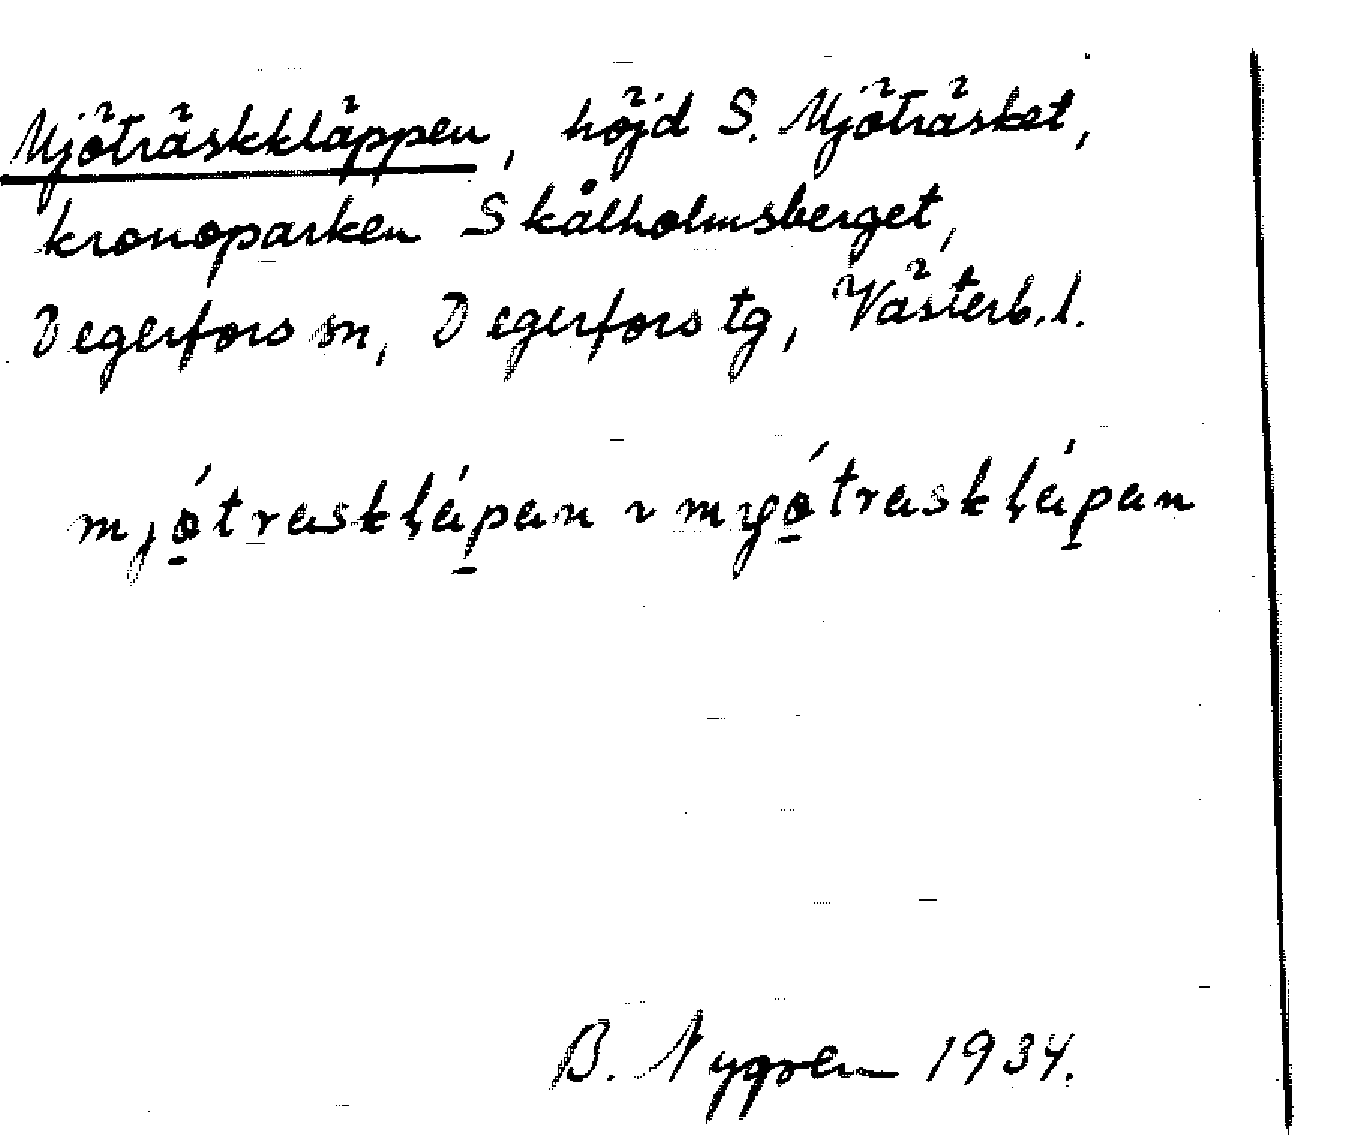 Mjöträskkläppen, höjd S. Mjöträsket,
kronoparken Skålholmsberget,
Degerfors sn, Degerfors tg, Västerb. l.
B. Nygren 1934.